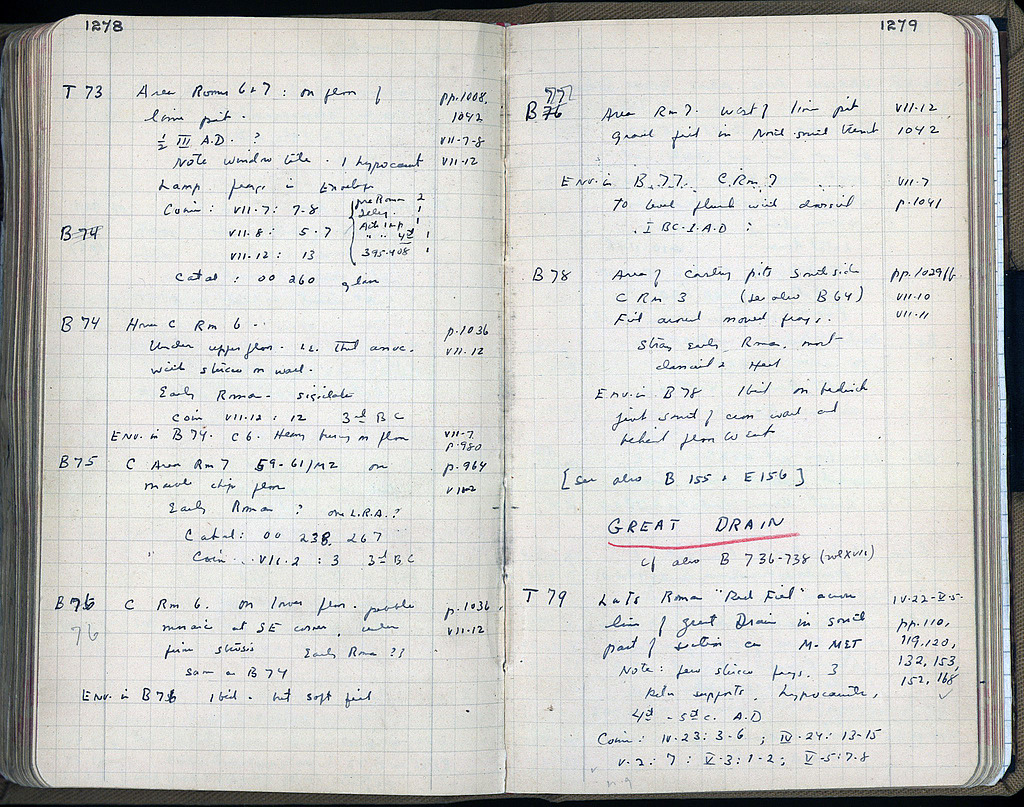 1278
T 73 Area Rooms 6+7 : on floor of pp. 1008,
lime pit. 1042
½ III A.D. ? VII-7-8
Note window tile. 1 hypocaust VII-12
Lamp frags in Envelope
Coin: VII-7: 7-8 pre Roman 2
1
B 74 VII-8: 5-7 1
" " 4th 1
VII-12: 13 395-408 1
Catal: OO 260 glass
B 74 House C Rm 6 - p. 1036
Under upper floor. i.e. that assoc. VII-12
with stucco on wall.
Early Roman - sigillata
Coin VII-12: 12 3rd BC
Env. in B 74. C 6. Heavy on floor VII-7
p. 980
B 75 C Area Rm 7 59-61/M2 on p. 964
marble chip floor VII-2
Early Roman ? one L.R.A.?
Catal: OO 238, 267
" Coin VII-2 : 3 3rd BC
B 76 C Rm 6. on lower floor - pebble p. 1036,
76 mosaic at SE corner, under VII-12
firm stucco Early Roman ??
same as B 74
Env. in B 76 1 bid. - but soft fill
1279
777
B 76 Area Rm 7. West of lime pit VII-12
gravel fill in North-south trench 1042
Env. in B. 77. C. Rm 7 VII-7
To level flush with classical p. 1041
. I BC - I. A.D :
B 78 Area of early pits South side pp. 1029 ff.
C Rm 3 (see also B 64) VII-10
Fill around moved frags. VII-11
Stray Early Roman, most
classical & Hell
Env. in B 78 1 bid on bedrock
just south of cross wall and
behind floor
[see also B 155 & E 156]
GREAT DRAIN
cf also B 736-738 (vol XVII)
T 79 Late Roman "Red Fill" across IV-22-V-5.
line of great Drain in south pp. 110,
part of section M-MET 119, 120,
Note: few stucco frags. 3 132, 153,
supports, hypocausts, 152, 168
4th - 5th c. A.D ✓
Coins: IV-23: 3-6 ; IV-24: 13-15
V-2: 7 : V-3: 1-2 ; V-5: 7-8